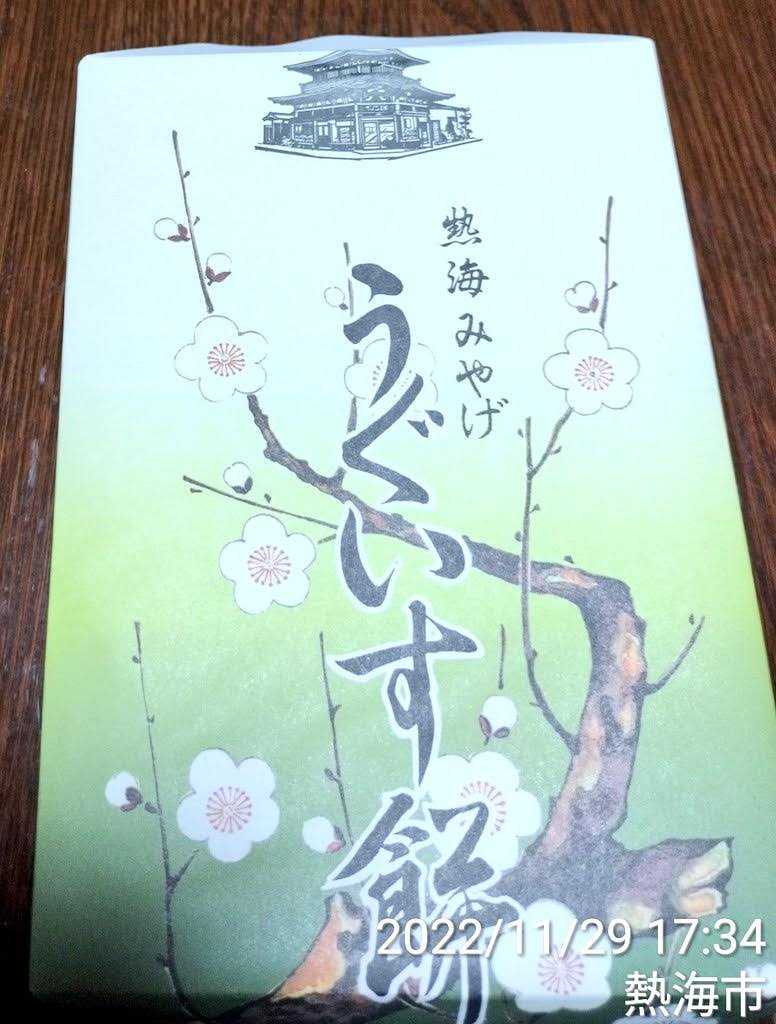 熱海みやげ
うぐいす餅
2022/11/29 17:34
熱海市